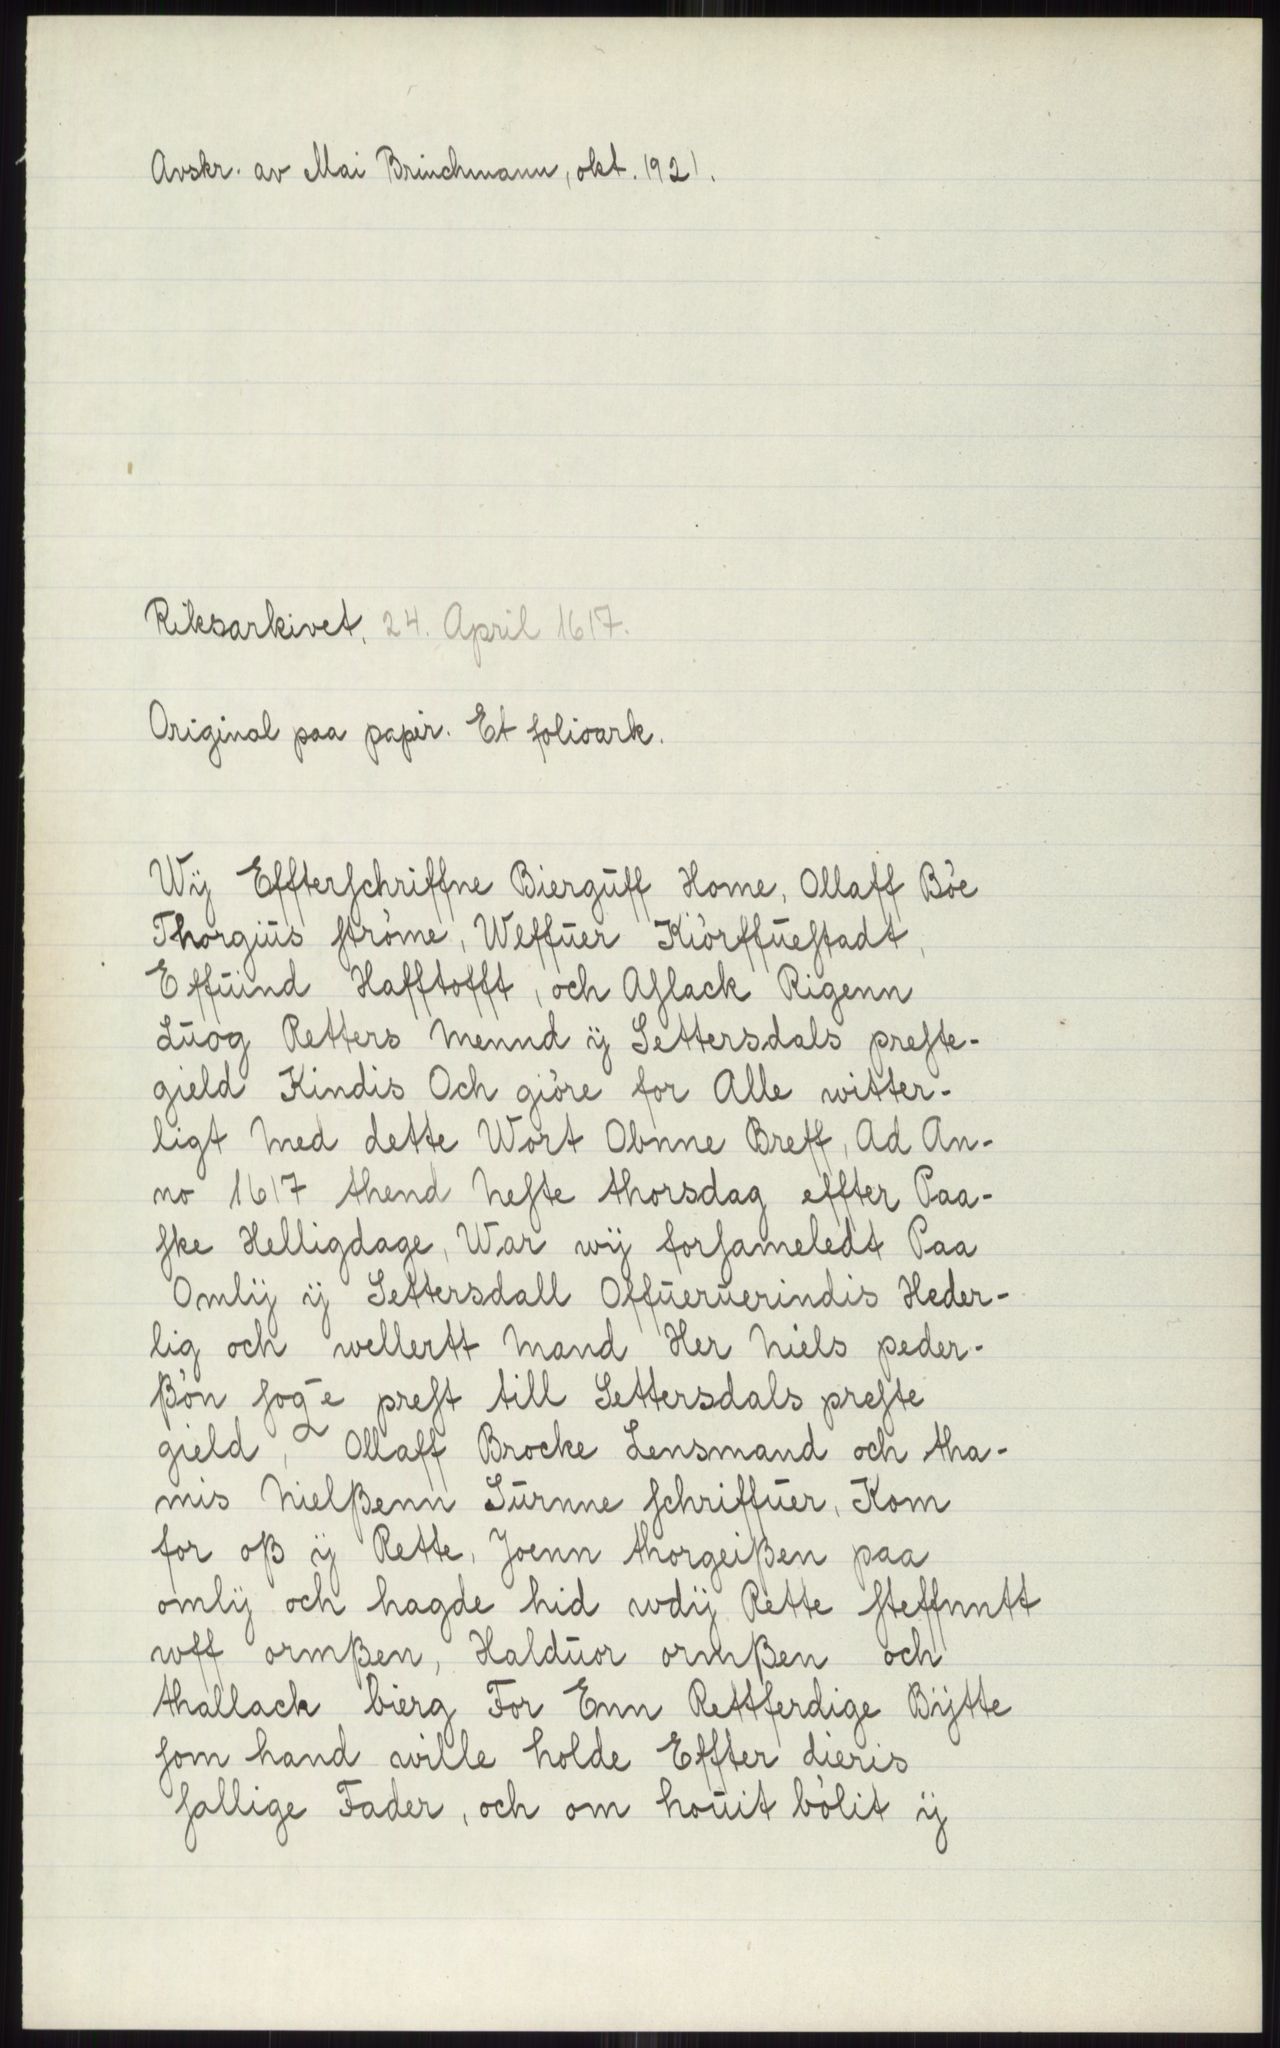 Avskr. av Mai Brinchmann, okt. 1921.
Riksarkivet. 24. April 1617.
Original paa papir. Et folioark.
Wÿ Effterſchriffne Biergūff Home, Ollaff Bòe
Thorgiūs ſtròme, Wlffūer Kiòrffūeſtadt,
Effūind Hafftofft, och Aſlack Rigenn
Lūog Retters Mennd ÿ Settersdals preſte-
gield Kindis Och giòre for Alle witter-
ligt Med dette Wort Obnne Breff, Ad An-
no 1617 thend Neſte thorsdag effter Paa-
ſke Helligdage, War wÿ forſameledt Paa
Omlÿ ÿ Settersdall Offūerūerindis Heder-
lig och wellertt Mand Her Niels peder-
ßòn ſoge preſt till Settersdals preſte
gield, Ollaff Brocke Lensmand och tha-
mis Nielßenn Sūrnne ſchriffūer, Kom
for oß ÿ Rette, Joenn thorgeißen paa
omlÿ och hagde hid wdÿ Rette ſteffnntt
wff ormßen, Haldūor ormßen och
thallack bierg For Enn Rettferdige Bÿtte
ſom hand wille holde Effter dieris
ſallige Fader, och om hoūit bòlit ÿ